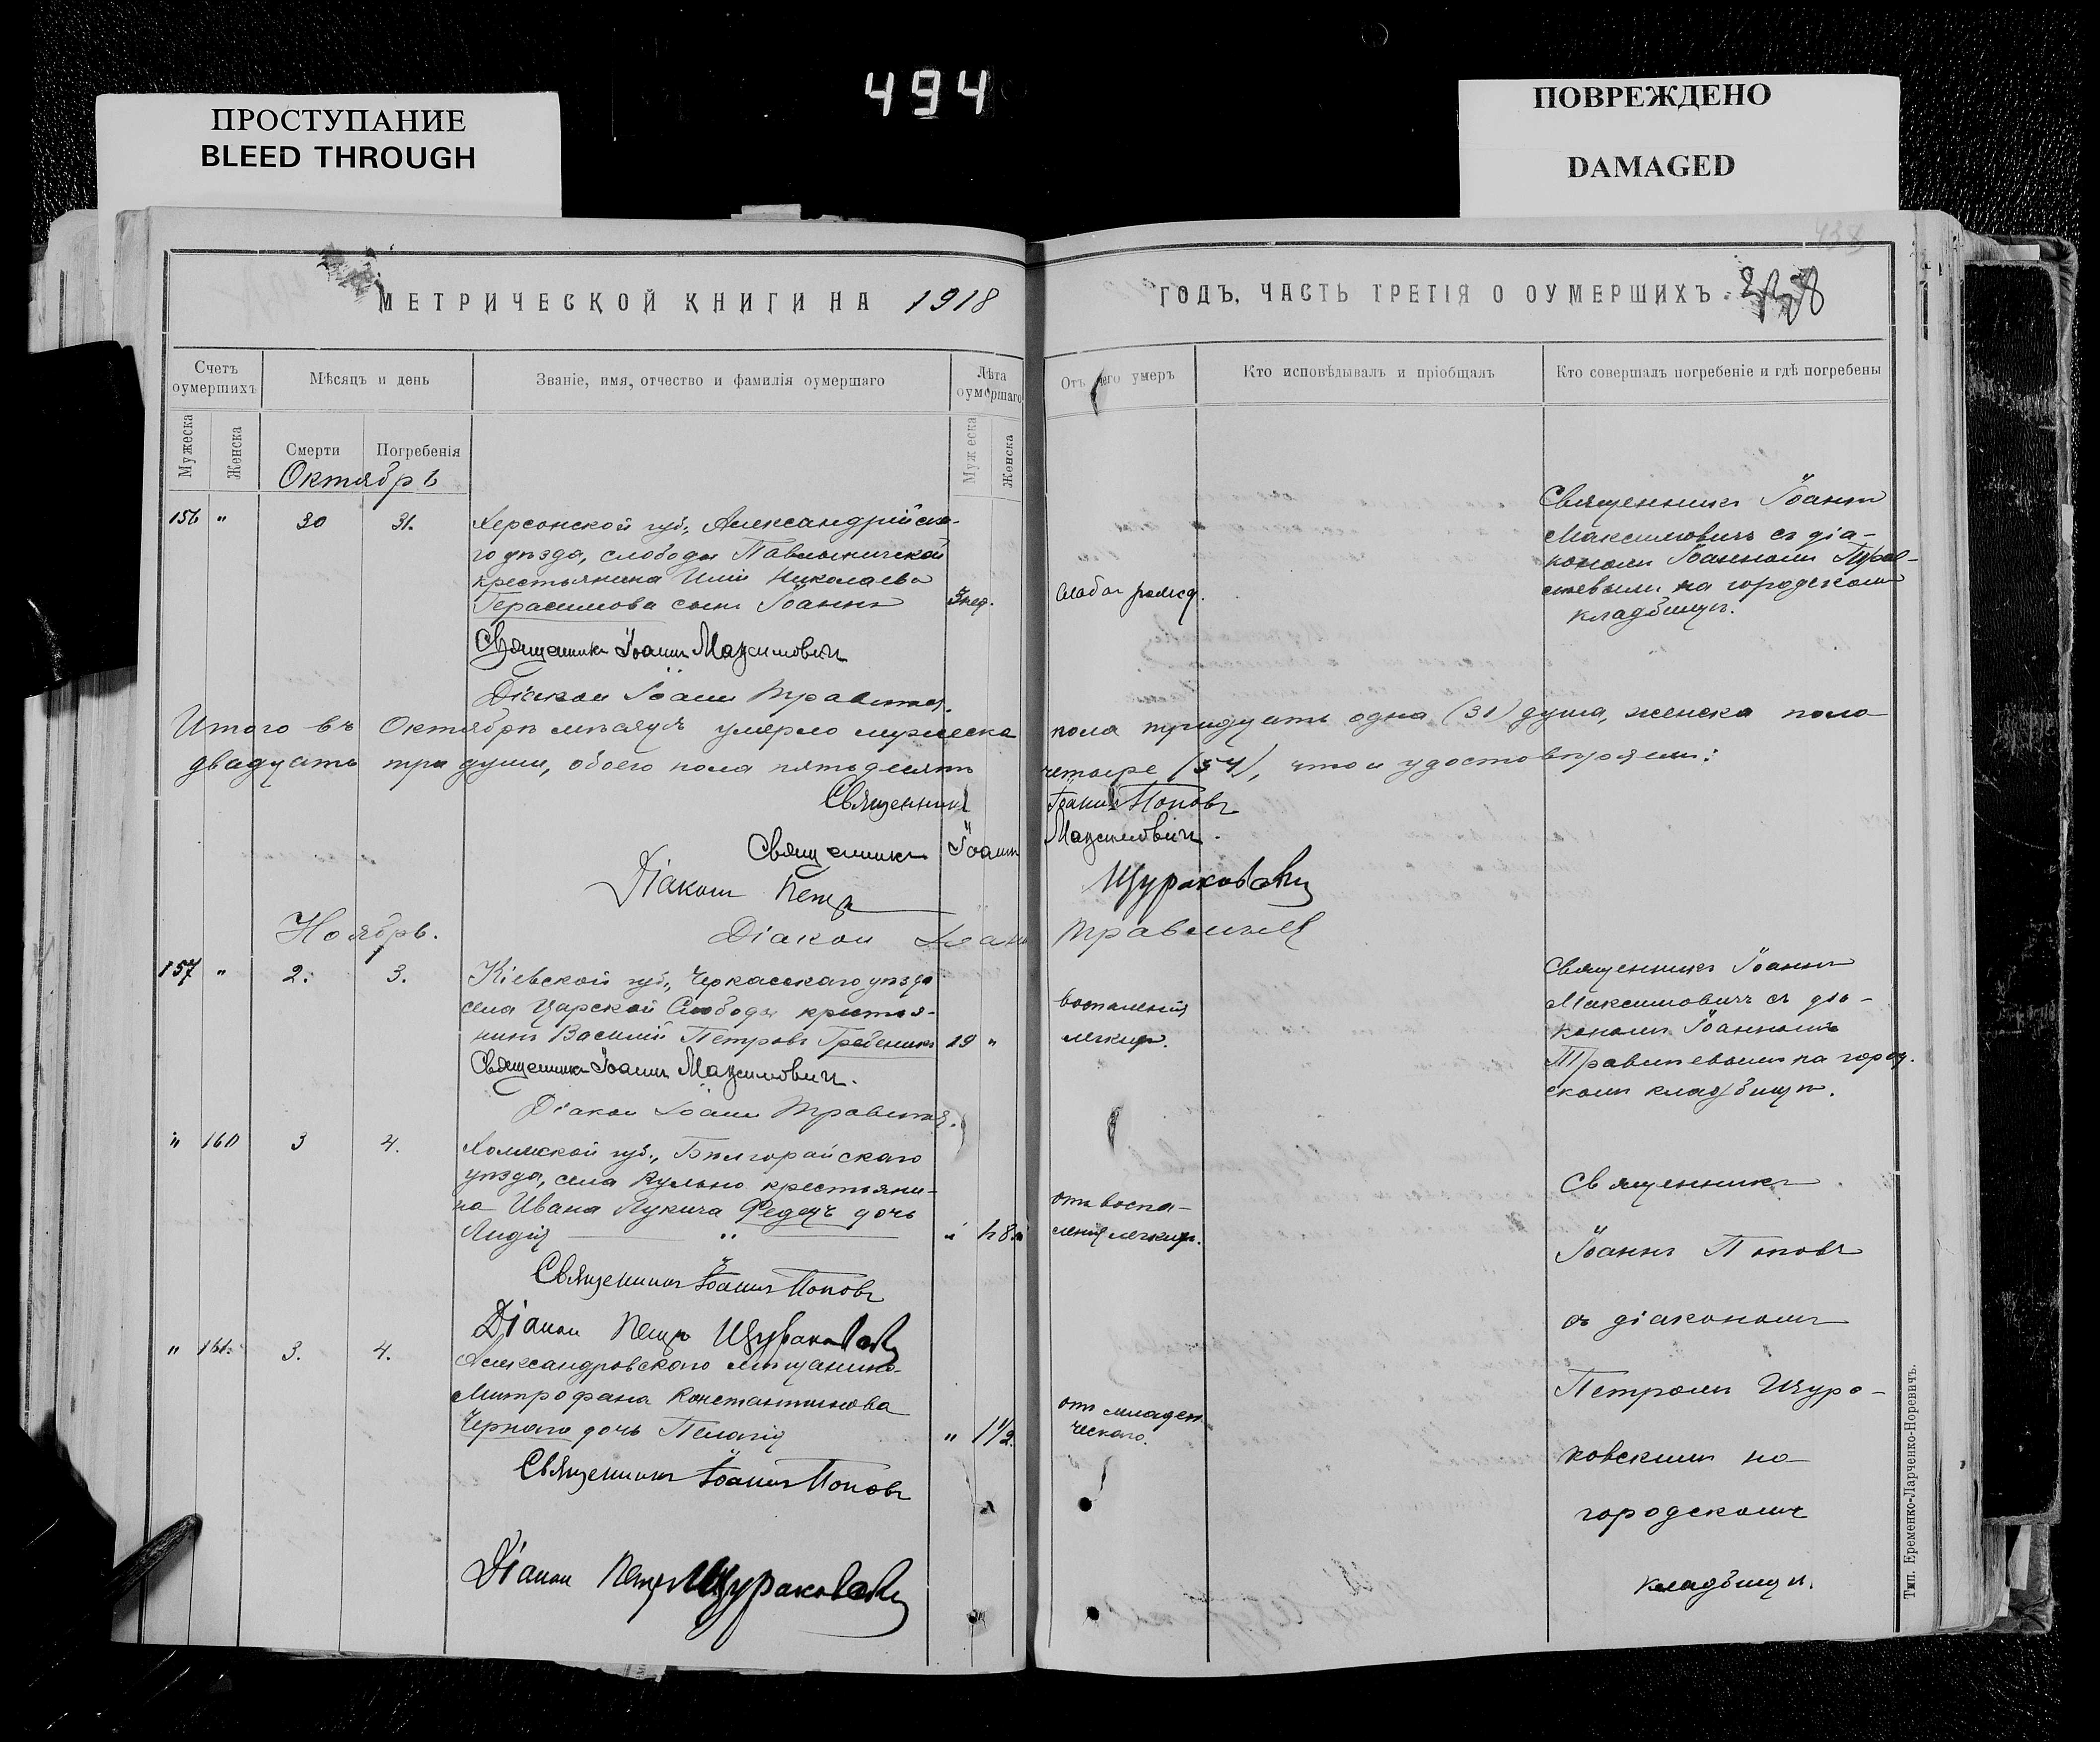 494
ПРОСТУПАНИЕ
BLEED THROUGH
ПОВРЕЖДЕНО
DAMAGED
МЕТРИЧЕСКОЙ КНИГИ НА 1918
Счетъ оумершихъ
Мѣсяцъ и день
Званіе, имя, отчество и фамилія оумершаго
Лѣта оумершаго
Мужеска
Женска
Смерти
Погребенія
Муж еска
Женска
Октябрь
156 " 30 31. Херсонской губ., Александрійска-
го уѣзда, слободы Павлышческой
крестьянина Иліи Николаева
Герасимова сынъ Іоаннъ 3 нед.
Священникъ Іоаннъ Максимовичъ
Діакон Іоанн Травинев.
Итого въ Октябрѣ мѣсяцѣ умерло мужеска
двадцать три души, обоего пола пятьдесятъ
Священникъ
Священникъ Іоаннъ
Діаконъ Петръ
Діакон Іоанн
Ноябрь.
157 " 2. 3. Кіевской губ., Черкасскаго уѣзда
села Царской Слободы крестья-
нинъ Василій Петровъ Гребеникъ 19 "
Священникъ Іоаннъ Максимовичъ.
Діакон Іоанн Травинев.
" 160 3 4. Холмской губ., Бѣлгорайскаго
уѣзда, села Кульно крестьяни-
на Ивана Лукича Федецъ дочь
Лидія "
Священникъ Іоаннъ Поповъ
Діакон Петръ Щураковскій
" 161. 3. 4. Александровскаго мѣщанина
Митрофана Константинова
Чернаго дочь Пелагія " 1 1/2.
Священникъ Іоаннъ Поповъ
Діакон Петръ Щураковскій
ГОДЪ, ЧАСТЬ ТРЕТІЯ О ОУМЕРШИХЪ.
Отъ чего умеръ
Кто исповѣдывалъ и пріобщалъ
Кто совершалъ погребеніе и гдѣ погребены
слабог рожд.
Священникъ Іоаннъ
Максимовичъ съ діа-
кономъ Іоанномъ Трав-
иневымъ на городскомъ
кладбищѣ.
пола тридцать одна (31) душа, женска пола
четыре (54), что и удостовѣряемъ:
Іоаннъ Поповъ
Максимовичъ.
Щураковскій
Травинев
воспаленія
легкихъ.
Священникъ Іоаннъ
Максимовичъ съ діа-
кономъ Іоанномъ
Травиневымъ на город-
скомъ кладбищѣ.
отъ воспа-
ленія легкихъ.
отъ младен
ческаго.
Священникъ
Іоаннъ Поповъ
съ діакономъ
Петромъ Щура-
ковскимъ на
городскомъ
кладбищѣ.
Тип. Еременко-Ларченко-Норевичъ.